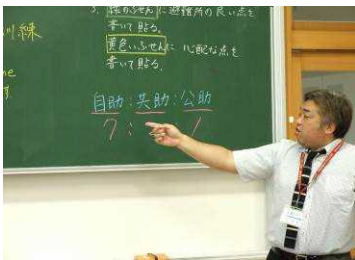 訓練
3. 桃色ふせんに避難所の良い点を
書いて貼る。
黄色いふせんに 心配な点を
書いて貼る。
自助:共助:公助
7: :1